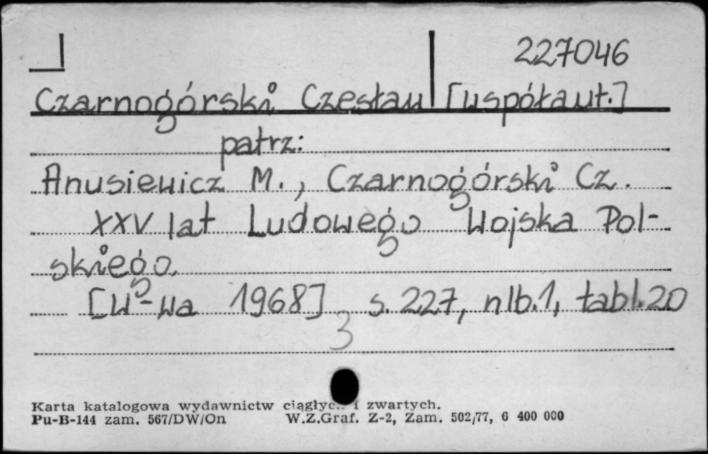 227046
Czarnogórski Czesław [współaut.]
patrz:
Anusiewicz M., Czarnogórski Cz.
XXV lat Ludowego Wojska Pol-
skiego.
[W-wa 1968] s. 227, nlb.1, tabl.20
3
Karta katalogowa wydawnictw i zwartych.
Pu-B-144 zam. 567/DW/On W.Z.Graf. Z-2, Zam. 502/77, 6 400 000